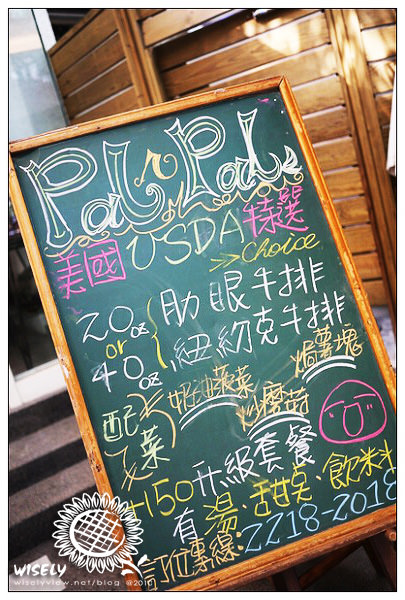 Pal Pal
美國 USDA 特選
>> Choice
20oz 肋眼牛排
or
40oz 紐約克牛排
配菜 奶油菠菜 炒蘑菇 焗薯塊
+150 升級套餐
有湯·甜點·飲料
訂位專線·2218-2018
WISELY
wiselyview.net/blog @2010